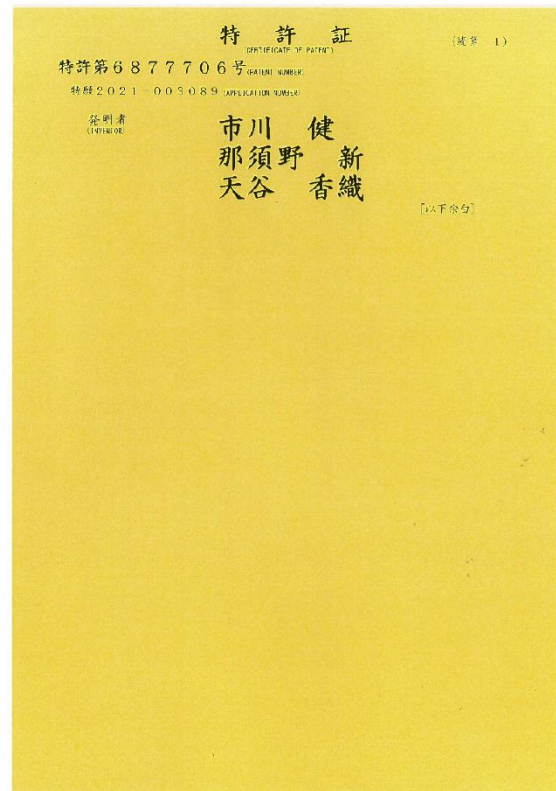 特許証
(CERTIFICATE OF PATENT)
(続葉 1)
特許第6877706号(PATENT NUMBER)
特願2021-003089(APPLICATION NUMBER)
発明者
(INVENTOR)
市川 健
那須野 新
天谷 香織
[以下余白]